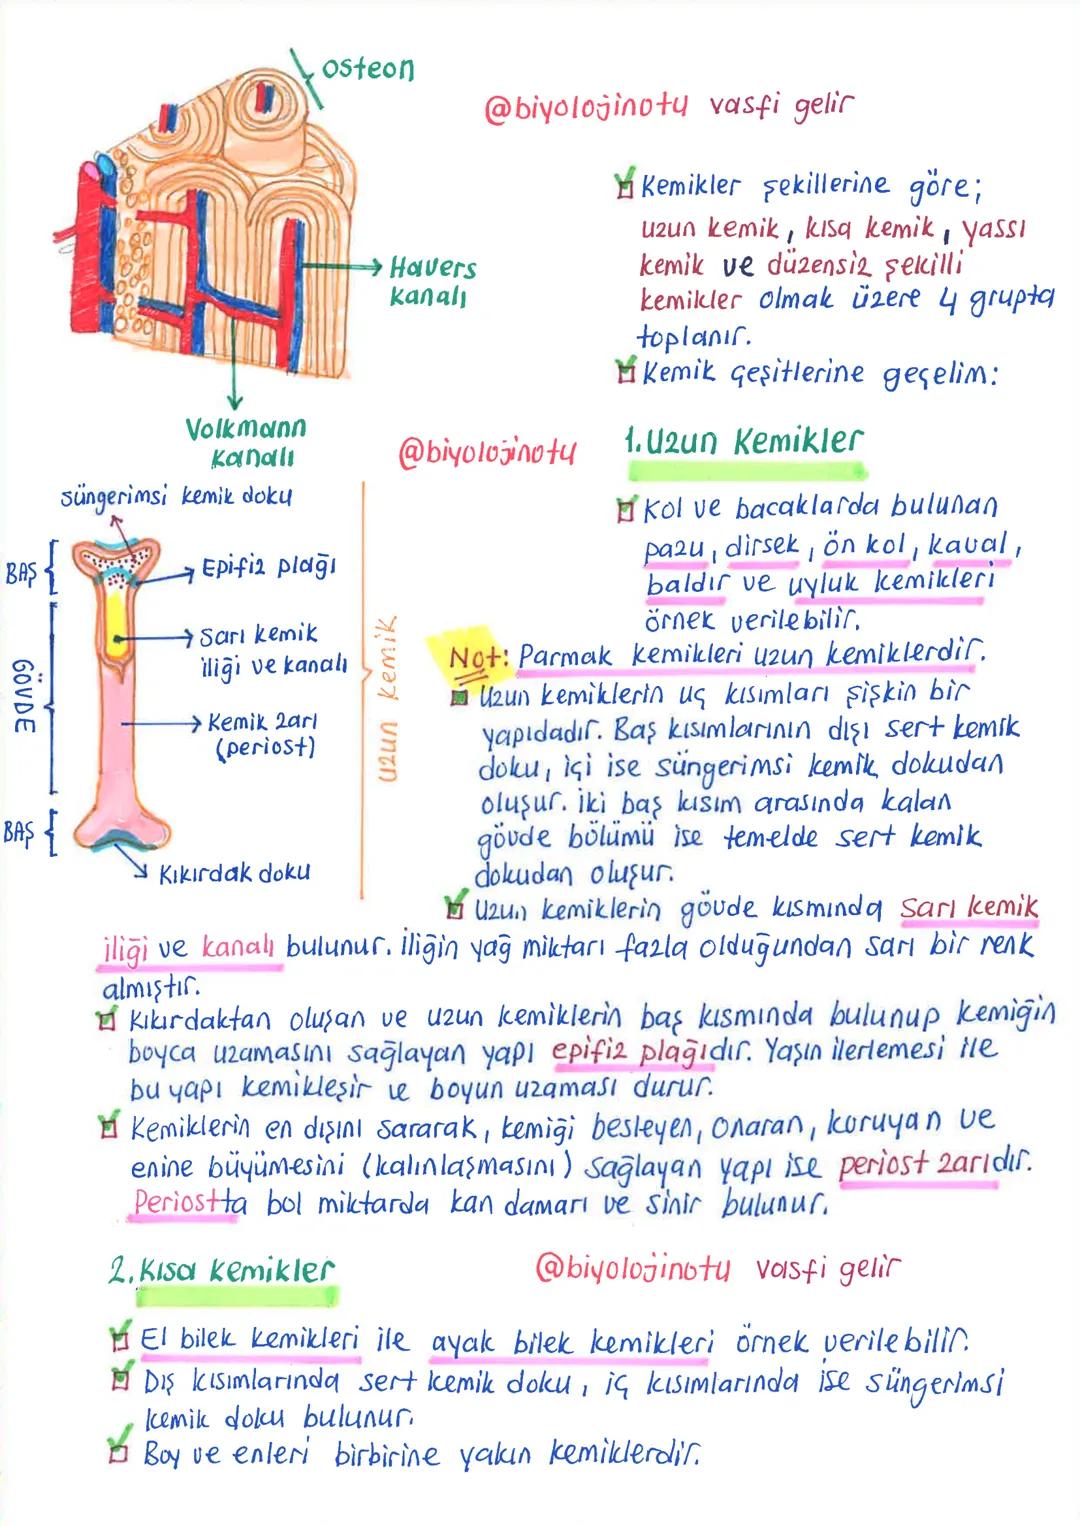 osteon
@biyolojinotu vasfi gelir
Kemikler şekillerine göre;
uzun kemik, kısa kemik, yassı
kemik ve düzensiz şekilli
kemikler olmak üzere 4 grupta
toplanır.
Kemik çeşitlerine geçelim:
Havers
kanalı
Volkmann
kanalı
@biyolojinotu
1.Uzun Kemikler
Kol ve bacaklarda bulunan
pazu, dirsek, ön kol, kaval,
baldır ve uyluk kemikleri
örnek verilebilir.
süngerimsi kemik doku
BAŞ
Epifiz plağı
Sarı kemik
iliği ve kanalı
GÖVDE
Kemik zarı
(periost)
BAŞ
Kıkırdak doku
Uzun Kemik
Not: Parmak kemikleri uzun kemiklerdir.
Uzun kemiklerin uç kısımları şişkin bir
yapıdadır. Baş kısımlarının dışı sert kemik
doku, içi ise süngerimsi kemik dokudan
oluşur. iki baş kısım arasında kalan
gövde bölümü ise temelde sert kemik
dokudan oluşur.
Uzun kemiklerin gövde kısmında Sarı kemik
iliği ve kanalı bulunur. iliğin yağ miktarı fazla olduğundan sarı bir renk
almıştır.
Kıkırdaktan oluşan ve uzun kemiklerin baş kısmında bulunup kemiğin
boyca uzamasını sağlayan yapı epifiz plağıdır. Yaşın ilerlemesi ile
bu yapı kemikleşir ve boyun uzaması durur.
Kemiklerin en dışını sararak, kemiği besleyen, onaran, koruyan ve
enine büyümesini (kalınlaşmasını) sağlayan yapı ise periost zarıdır.
Periostta bol miktarda kan damarı ve sinir bulunur.
2.Kısa Kemikler
@biyolojinotu vasfi gelir
El bilek kemikleri ile ayak bilek kemikleri örnek verilebilir.
Dış kısımlarında sert kemik doku, iç kısımlarında ise süngerimsi
kemik doku bulunur.
Boy ve enleri birbirine yakın kemiklerdir.